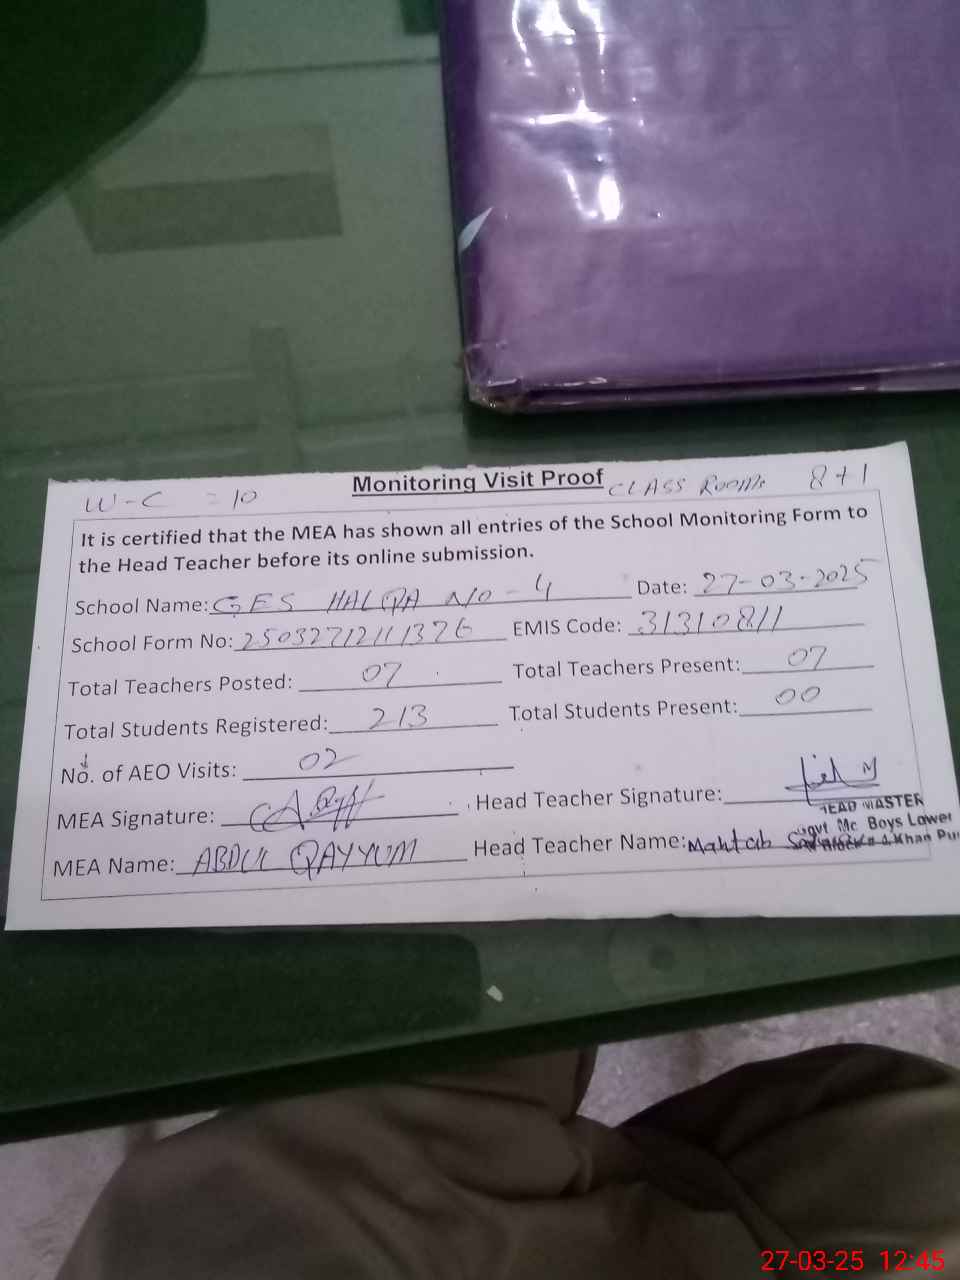 Monitoring Visit Proof
W-C = 10
CLASS ROOMs 8+1
It is certified that the MEA has shown all entries of the School Monitoring Form to
the Head Teacher before its online submission.
School Name: GES HALQA NO - 4 Date: 27-03-2025
School Form No: 25032712111376 EMIS Code: 31310811
Total Teachers Posted: 07 Total Teachers Present: 07
Total Students Registered: 213 Total Students Present: 00
No. of AEO Visits: 02
MEA Signature: Head Teacher Signature:
HEAD MASTER
Govt Mc Boys Lower
MEA Name: ABDUL QAYYUM Head Teacher Name: Mahtab
Khan Pu
27-03-25 12:45